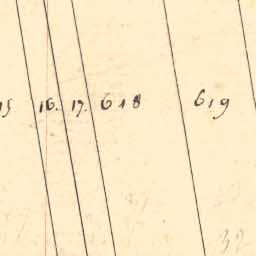 15 16. 17. 618 619
32